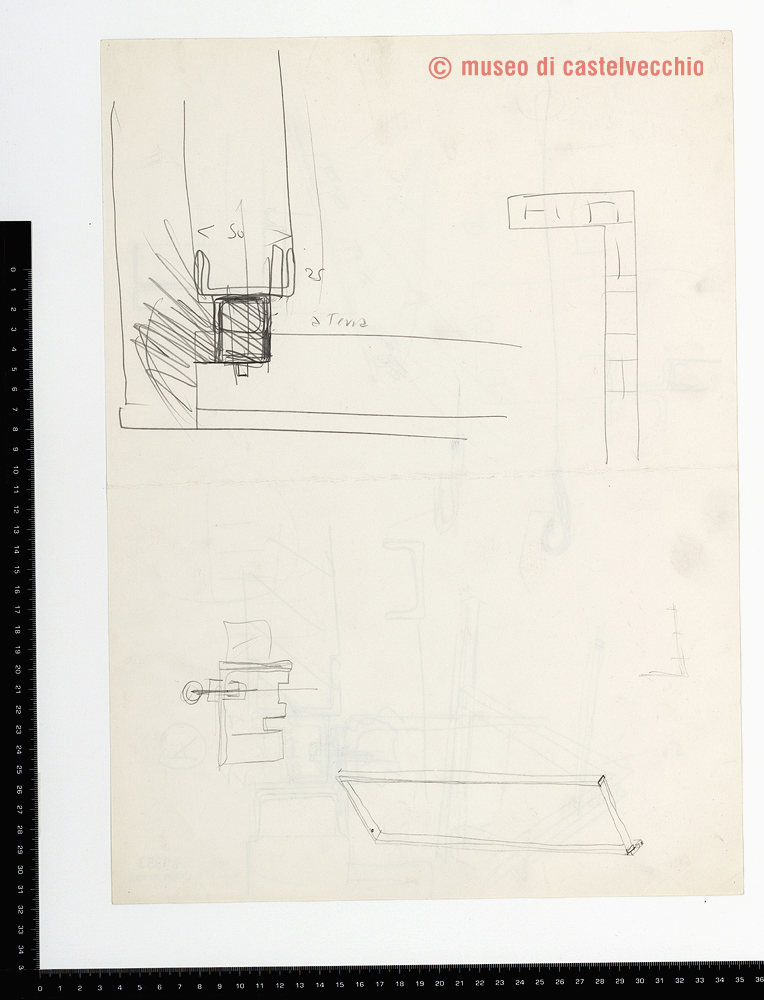 © museo di castelvecchio
50
25
a Terra
0 1 2 3 4 5 6 7 8 9 10 11 12 13 14 15 16 17 18 19 20 21 22 23 24 25 26 27 28 29 30 31 32 33 34
0 1 2 3 4 5 6 7 8 9 10 11 12 13 14 15 16 17 18 19 20 21 22 23 24 25 26 27 28 29 30 31 32 33 34 35 36